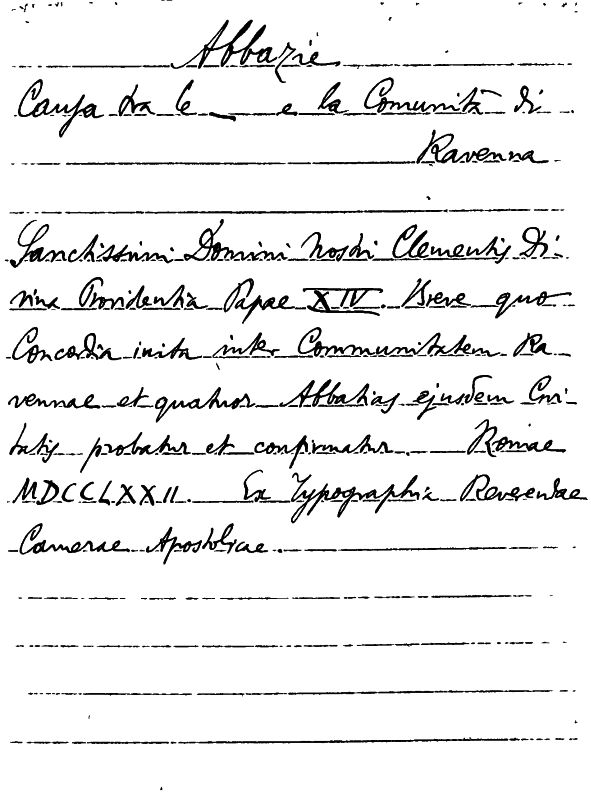 Abbazie
Causa tra le — e la Comunità di
Ravenna
Sanctissimi Domini Nostri Clementis Di-
vina Providentia Papae XIV. Breve quo
Concordia inita inter Communitatem Ra
vennae et quatuor Abbatias ejusdem Civi-
tatis probatur et confirmatur. Romae
MDCCLXXII. Ex Typographia Reverendae
Camerae Apostolicae.